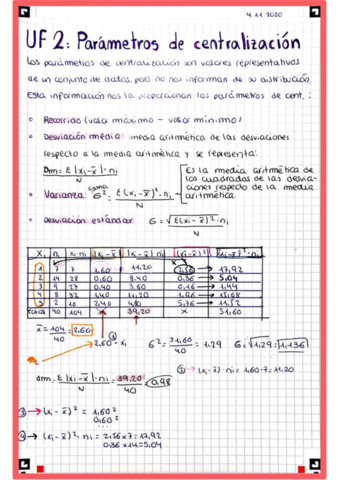 4.11.2020
UF 2: Parámetros de centralización
Los parámetros de centralización son valores representativos
de un conjunto de datos, pero no nos informan de su distribución.
Esta información nos la proporcionan los parámetros de cent.:
Recorrido (valor máximo - valor mínimo)
Desviación media: media aritmética de las desviaciones
respecto a la media aritmética y se representa:
Dm = Σ|xi-x̄|·ni / N
Es la media aritmética de
los cuadrados de las desvia-
ciones respecto de la media
aritmética.
Varianza: σ² = Σ(xi-x̄)²·ni / N
Desviación estándar: σ = √Σ(xi-x̄)²·ni / N
xi ni xi·ni |xi-x̄| |xi-x̄|·ni (xi-x̄)² (xi-x̄)²·ni
1 7 7 1,60 11,20 2,56 → 17,92
2 14 28 0,60 8,40 0,36 → 5,04
3 9 27 0,40 3,60 0,16 → 1,44
4 8 32 1,40 11,20 1,96 → 15,68
5 2 10 2,40 4,80 5,76 → 11,52
total 40 104 x 39,20 x 51,60
x̄ = 104 / 40 = 2,60
2,60 - xi
σ² = 51,60 / 40 = 1,29
σ = √1,29 = 1,136
dm = Σ|xi-x̄|·ni / N = 39,20 / 40 = 0,98
|xi-x̄|·ni = 1,60·7 = 11,20
③ → (xi-x̄)² = 1,60²
0,60²
④ → (xi-x̄)²·ni = 2,56x7 = 17,92
0,36x14 = 5,04